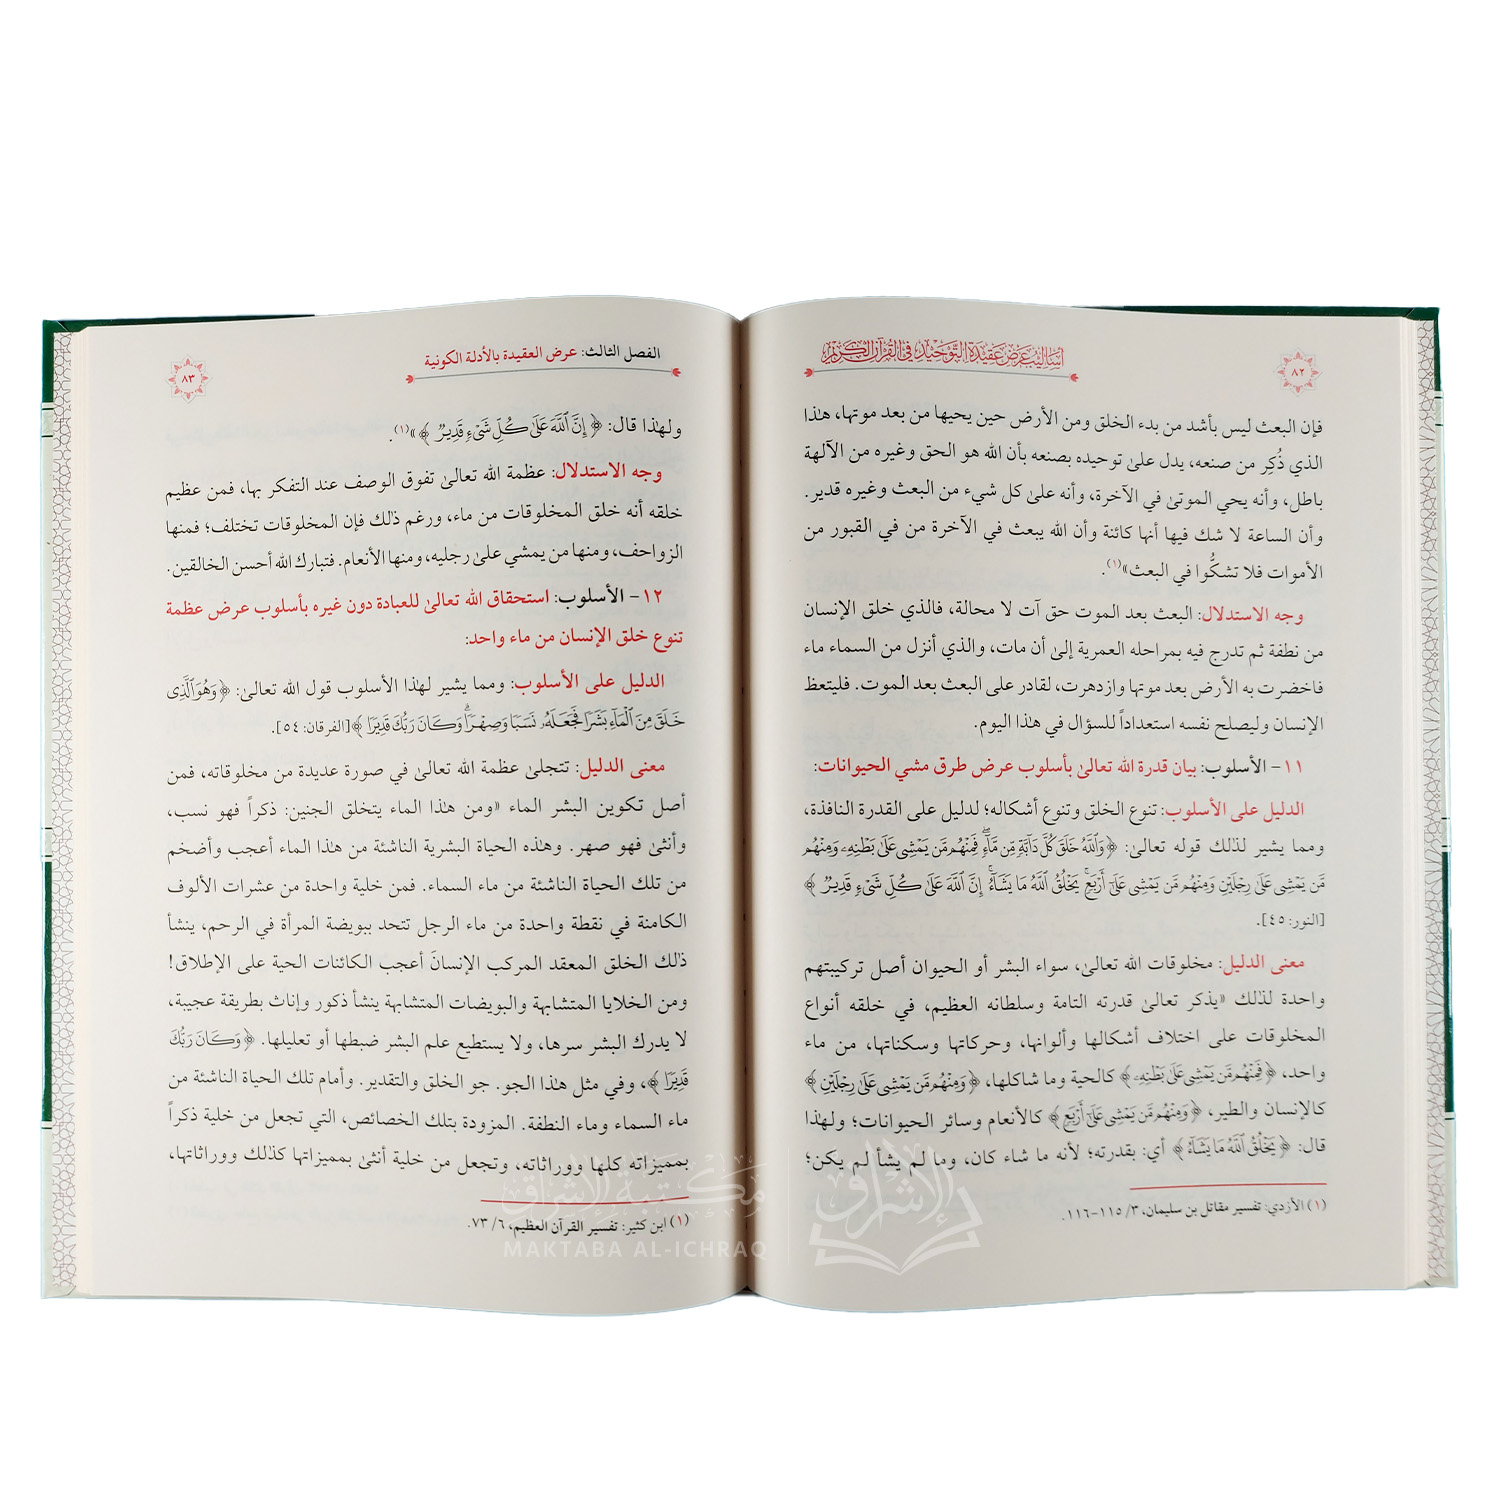 أساليب عرض عقيدة التوحيد في القرآن الكريم
٨٢
فإن البعث ليس بأشد من بدء الخلق ومن الأرض حين يحيها من بعد موتها، هـٰذا
الذي ذُكِر من صنعه، يدل علىٰ توحيده بصنعه بأن الله هو الحق وغيره من الآلهة
باطل، وأنه يحي الموتىٰ في الآخرة، وأنه علىٰ كل شيء من البعث وغيره قدير.
وأن الساعة لا شك فيها أنها كائنة وأن الله يبعث في الآخرة من في القبور من
الأموات فلا تشكُّوا في البعث»(١).
وجه الاستدلال: البعث بعد الموت حق آت لا محالة، فالذي خلق الإنسان
من نطفة ثم تدرج فيه بمراحله العمرية إلىٰ أن مات، والذي أنزل من السماء ماء
فاخضرت به الأرض بعد موتها وازدهرت، لقادر على البعث بعد الموت. فليتعظ
الإنسان وليصلح نفسه استعداداً للسؤال في هـٰذا اليوم.
١١- الأسلوب: بيان قدرة الله تعالىٰ بأسلوب عرض طرق مشي الحيوانات:
الدليل على الأسلوب: تنوع الخلق وتنوع أشكاله؛ لدليل على القدرة النافذة،
ومما يشير لذٰلك قوله تعالىٰ: ﴿وَٱللَّهُ خَلَقَ كُلَّ دَآبَّةٖ مِّن مَّآءٖۖ فَمِنۡهُم مَّن يَمۡشِي عَلَىٰ بَطۡنِهِۦ وَمِنۡهُم
مَّن يَمۡشِي عَلَىٰ رِجۡلَيۡنِ وَمِنۡهُم مَّن يَمۡشِي عَلَىٰٓ أَرۡبَعٖۚ يَخۡلُقُ ٱللَّهُ مَا يَشَآءُۚ إِنَّ ٱللَّهَ عَلَىٰ كُلِّ شَيۡءٖ قَدِيرٞ﴾
[النور: ٤٥].
معنى الدليل: مخلوقات الله تعالىٰ، سواء البشر أو الحيوان أصل تركيبتهم
واحدة لذٰلك «يذكر تعالىٰ قدرته التامة وسلطانه العظيم، في خلقه أنواع
المخلوقات على اختلاف أشكالها وألوانها، وحركاتها وسكناتها، من ماء
واحد، ﴿فَمِنۡهُم مَّن يَمۡشِي عَلَىٰ بَطۡنِهِۦ﴾ كالحية وما شاكلها، ﴿وَمِنۡهُم مَّن يَمۡشِي عَلَىٰ رِجۡلَيۡنِ﴾
كالإنسان والطير، ﴿وَمِنۡهُم مَّن يَمۡشِي عَلَىٰٓ أَرۡبَعٖ﴾ كالأنعام وسائر الحيوانات؛ ولهـٰذا
قال: ﴿يَخۡلُقُ ٱللَّهُ مَا يَشَآءُ﴾ أي: بقدرته؛ لأنه ما شاء كان، وما لم يشأ لم يكن؛
(١) الأزدي: تفسير مقاتل بن سليمان، ٣/ ١١٥-١١٦.
الفصل الثالث: عرض العقيدة بالأدلة الكونية
٨٣
ولهـٰذا قال: ﴿إِنَّ ٱللَّهَ عَلَىٰ كُلِّ شَيۡءٖ قَدِيرٞ﴾»(١).
وجه الاستدلال: عظمة الله تعالىٰ تفوق الوصف عند التفكر بها، فمن عظيم
خلقه أنه خلق المخلوقات من ماء، ورغم ذٰلك فإن المخلوقات تختلف؛ فمنها
الزواحف، ومنها من يمشي علىٰ رجليه، ومنها الأنعام. فتبارك الله أحسن الخالقين.
١٢- الأسلوب: استحقاق الله تعالىٰ للعبادة دون غيره بأسلوب عرض عظمة
تنوع خلق الإنسان من ماء واحد:
الدليل على الأسلوب: ومما يشير لهـٰذا الأسلوب قول الله تعالىٰ: ﴿وَهُوَ ٱلَّذِي
خَلَقَ مِنَ ٱلۡمَآءِ بَشَرٗا فَجَعَلَهُۥ نَسَبٗا وَصِهۡرٗاۗ وَكَانَ رَبُّكَ قَدِيرٗا﴾ [الفرقان: ٥٤].
معنى الدليل: تتجلىٰ عظمة الله تعالىٰ في صورة عديدة من مخلوقاته، فمن
أصل تكوين البشر الماء «ومن هـٰذا الماء يتخلق الجنين: ذكراً فهو نسب،
وأنثىٰ فهو صهر. وهـٰذه الحياة البشرية الناشئة من هـٰذا الماء أعجب وأضخم
من تلك الحياة الناشئة من ماء السماء. فمن خلية واحدة من عشرات الألوف
الكامنة في نقطة واحدة من ماء الرجل تتحد ببويضة المرأة في الرحم، ينشأ
ذٰلك الخلق المعقد المركب الإنسانَ أعجب الكائنات الحية على الإطلاق!
ومن الخلايا المتشابهة والبويضات المتشابهة ينشأ ذكور وإناث بطريقة عجيبة،
لا يدرك البشر سرها، ولا يستطيع علم البشر ضبطها أو تعليلها. ﴿وَكَانَ رَبُّكَ
قَدِيرٗا﴾، وفي مثل هـٰذا الجو. جو الخلق والتقدير. وأمام تلك الحياة الناشئة من
ماء السماء وماء النطفة. المزودة بتلك الخصائص، التي تجعل من خلية ذكراً
بمميزاته كلها ووراثاته، وتجعل من خلية أنثىٰ بمميزاتها كذٰلك ووراثاتها،
(١) ابن كثير: تفسير القرآن العظيم، ٦/ ٧٣.
مكتبة الإشراق
MAKTABA AL-ICHRAQ
الإشراق